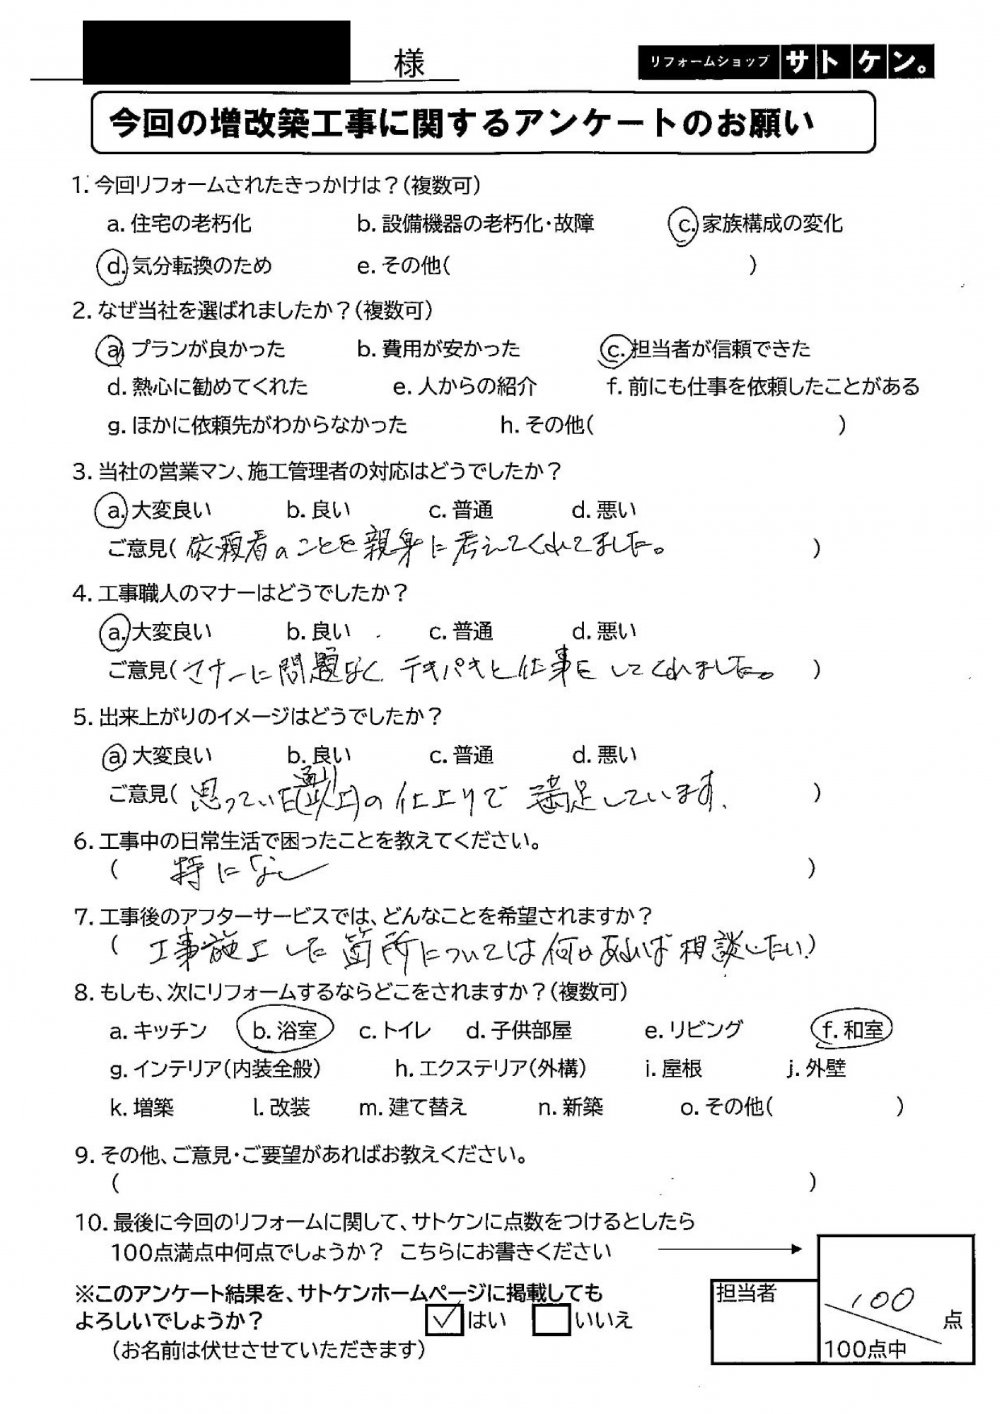 様
リフォームショップ サトケン。
今回の増改築工事に関するアンケートのお願い
1. 今回リフォームされたきっかけは？(複数可)
a. 住宅の老朽化 b. 設備機器の老朽化・故障 c. 家族構成の変化
d. 気分転換のため e. その他( )
2. なぜ当社を選ばれましたか？(複数可)
a. プランが良かった b. 費用が安かった c. 担当者が信頼できた
d. 熱心に勧めてくれた e. 人からの紹介 f. 前にも仕事を依頼したことがある
g. ほかに依頼先がわからなかった h. その他( )
3. 当社の営業マン、施工管理者の対応はどうでしたか？
a. 大変良い b. 良い c. 普通 d. 悪い
ご意見( 依頼者のことを親身に考えてくれてました。 )
4. 工事職人のマナーはどうでしたか？
a. 大変良い b. 良い c. 普通 d. 悪い
ご意見( マナーに問題なく テキパキと仕事をしてくれました。 )
5. 出来上がりのイメージはどうでしたか？
a. 大変良い b. 良い c. 普通 d. 悪い
ご意見( 思っていた(通り以上)の仕上りで 満足しています. )
6. 工事中の日常生活で困ったことを教えてください。
( 特になし )
7. 工事後のアフターサービスでは、どんなことを希望されますか？
( 工事施工した箇所については何かあれば相談したい )
8. もしも、次にリフォームするならどこをされますか？(複数可)
a. キッチン b. 浴室 c. トイレ d. 子供部屋 e. リビング f. 和室
g. インテリア(内装全般) h. エクステリア(外構) i. 屋根 j. 外壁
k. 増築 l. 改装 m. 建て替え n. 新築 o. その他( )
9. その他、ご意見・ご要望があればお教えください。
( )
10. 最後に今回のリフォームに関して、サトケンに点数をつけるとしたら
100点満点中何点でしょうか？ こちらにお書きください
※このアンケート結果を、サトケンホームページに掲載しても
よろしいでしょうか？ ✓ はい いいえ
(お名前は伏せさせていただきます)
担当者
100 点
100点中